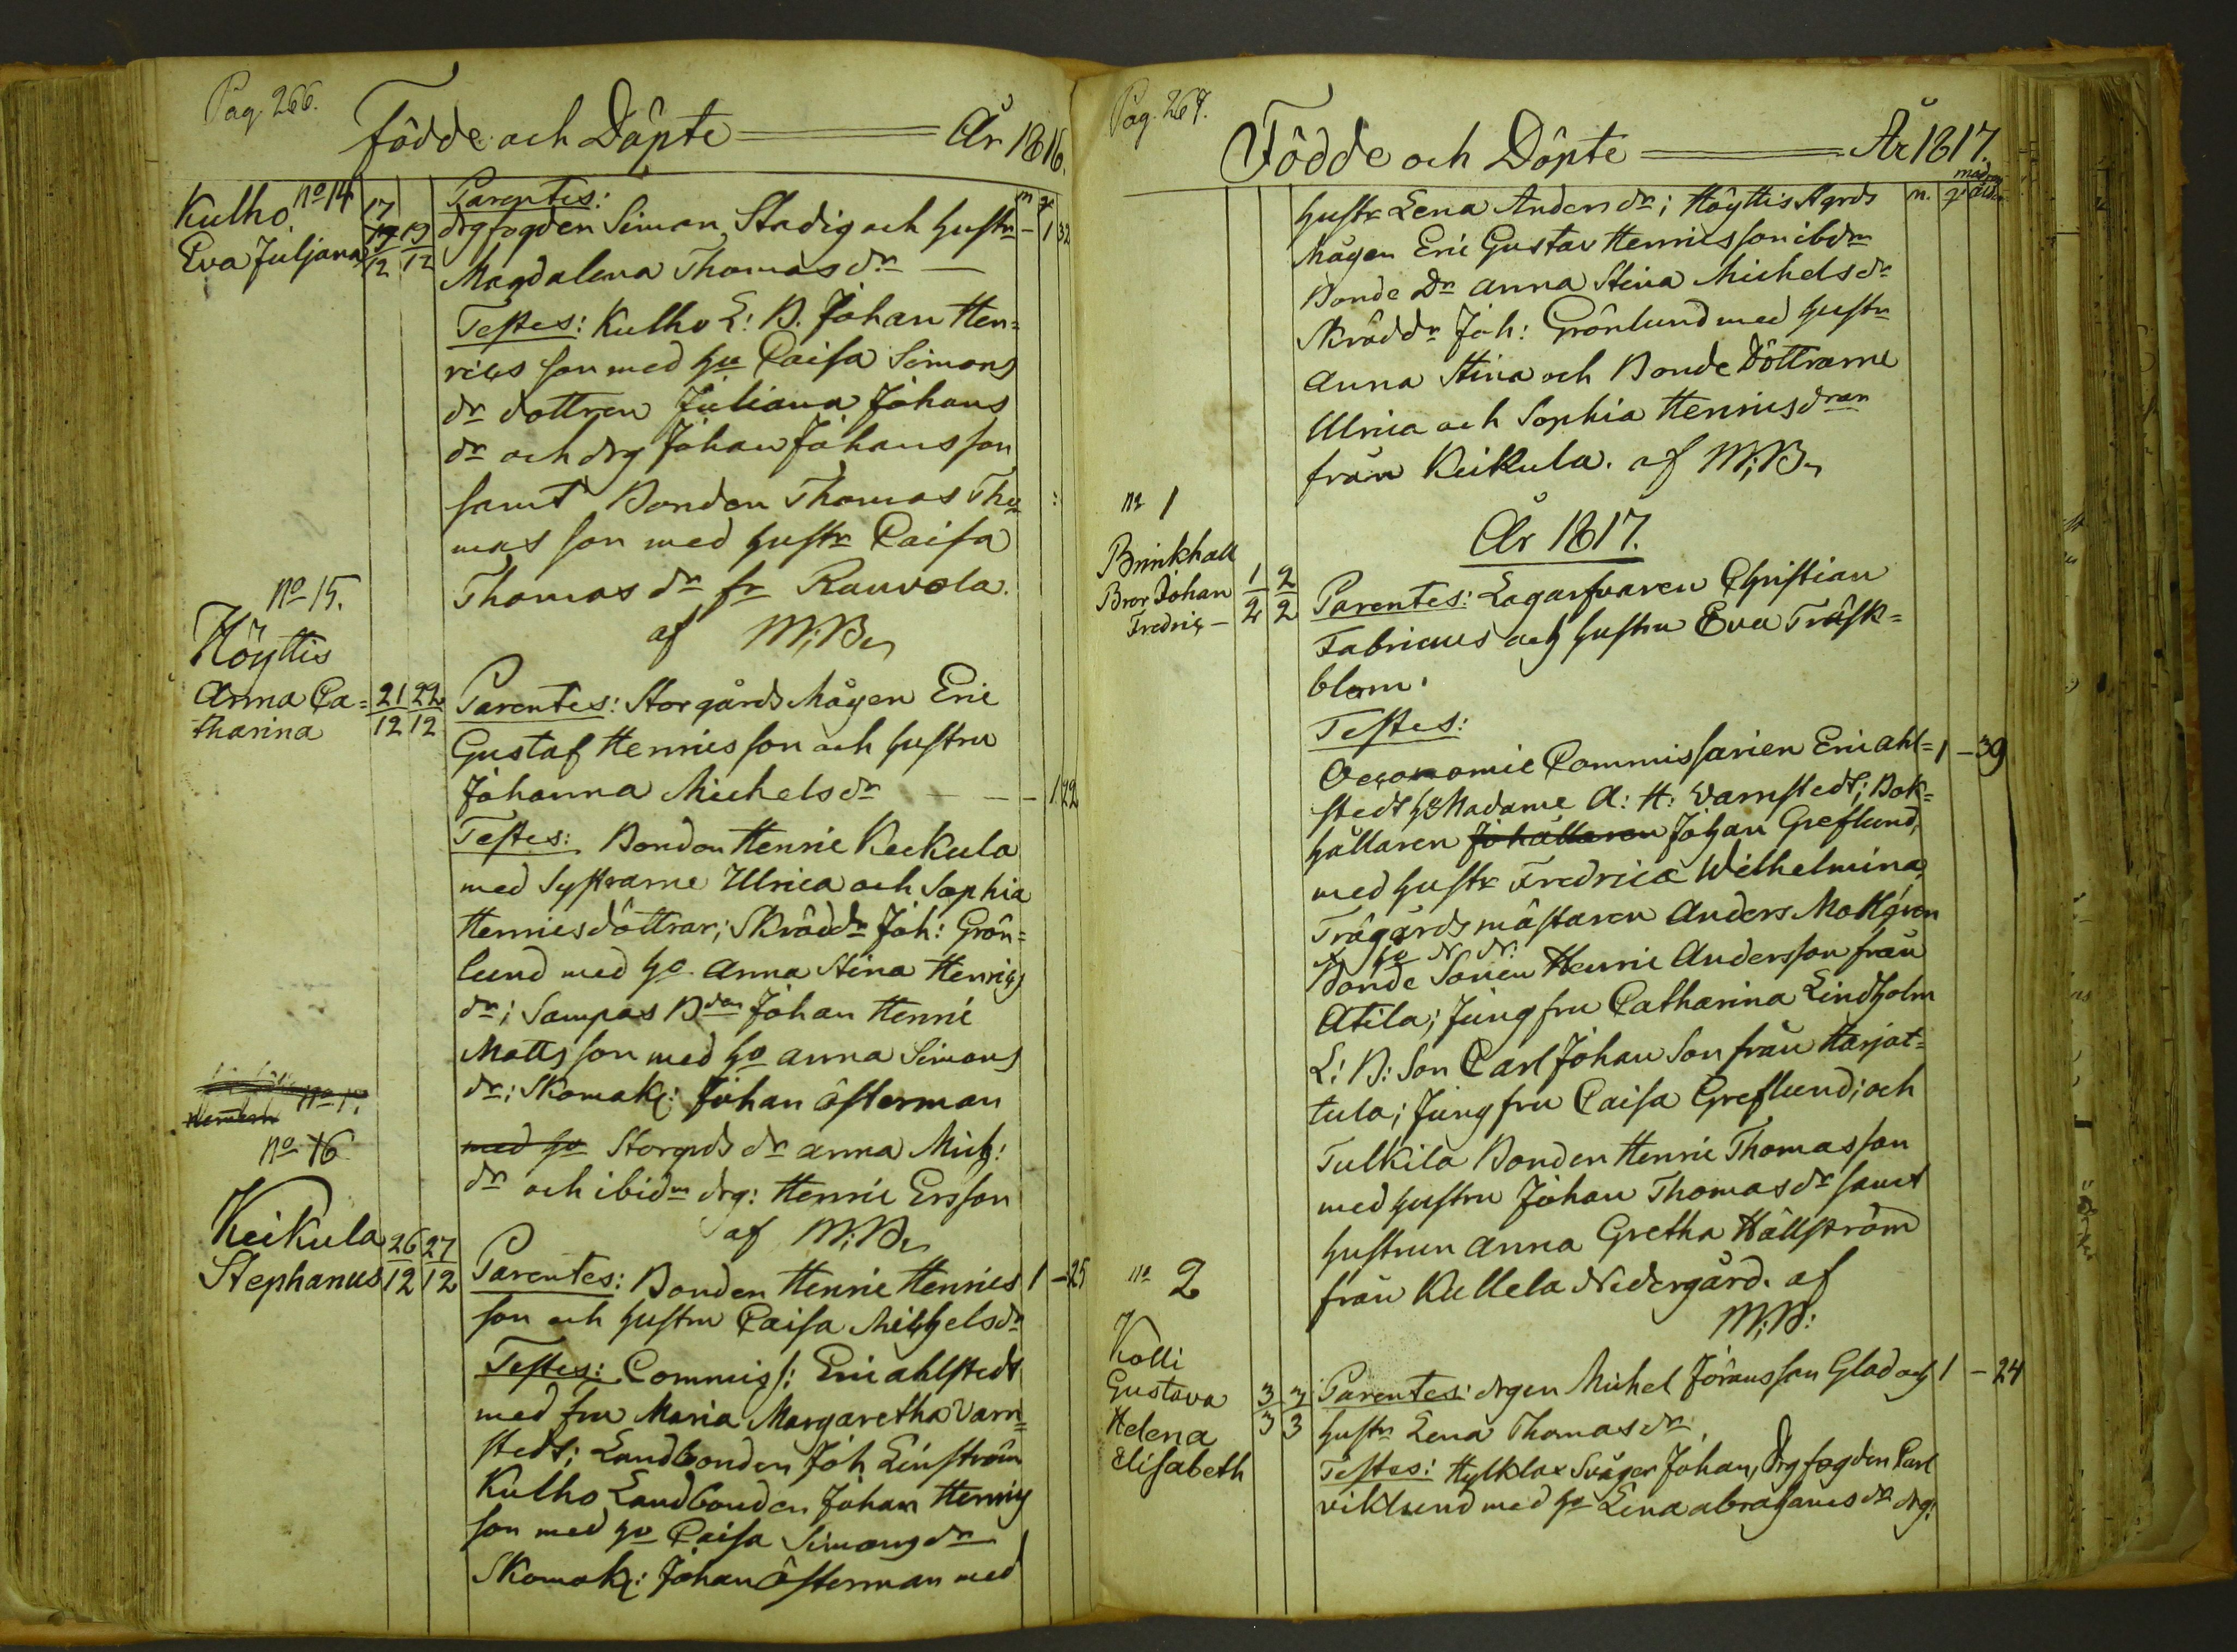 Pag. 266.
Födde och Döpte — År 1816.
Kulho. No 14
Eva Juljana
17 19
12 12
m q
Parentes:
drgfogden Simon Stadig och hustru — 1 32
Magdalena Thomas dr —
Testes: Kulho L: B. Johan Hen=
rics son med hu Caisa Simons
dr dottren Juliana Johans
dr och drg Johan Johansson
samt Bonden Thomas Tho=
mas son med hustr Caisa
Thomas dr fr Rauvola.
af M:Br
No 15.
Höyttis
Anna Ca=
tharina
21 22
12 12
Parentes: Storgårds Mågen Eric
Gustaf Henricsson och hustru
Johanna Michels dr — — 1 22
Testes: Bonden Henric Keikula
med Systrarne Ulrica och Sophia
Henricsdöttrar; Skrädd: Joh: Grön=
lund med ho Anna Stina Henrics
dr; Sampas Bdn Johan Henric
Mattsson med ho Anna Simons
dr; Skomak: Johan Österman
med ho Storgrds dr Anna Mich:
dr och ibidm drg: Henric Ersson
af M:Br
No 16
Keikula
Stephanus
26 27
12 12
Parentes: Bonden Henric Henrics 1 — 25
son och hustru Caisa Michelsdr
Testes: Commiss: Eric Ahlstedt
med fru Maria Margaretha Varn=
stedt; Landbonden Joh Linström
Kulho Landbonden Johan Henrics
son med ho Caisa Simonsdr
Skomak: Johan Österman med
Pag. 267.
Födde och Döpte — År 1817.
m. q
hustr Lena Anders dr; Höyttis Stgrds
Mågen Eric Gustav Henricsson ibdm
Bonde Dr Anna Stina Michels dr
Skräddr Joh: Grönlund med hustr
Anna Stina och Bonde Döttrarne
Ulrica och Sophia Henricsdrar
från Keikula. af M:Br
År 1817.
No 1
Brinkhall
Bror Johan
Fredric —
1 2
2 2
Parentes: Lagarfvaren Christian
Fabricius och hustru Eva Träsk=
blom.
Testes:
Oeconomie Commissarien Eric Ahl= 1 — 39
stedt ho Madame A: H: Varnstedt; Bok=
hållaren Johållaren Johan Greflund,
med hustr Fredrica Wilhelmina,
Trägårdsmästaren Anders Mollgren
ho N. N:
Bonde Sonen Henric Andersson från
Atila; Jungfru Catharina Lindholm
L: B: Son Carl Johan Son från Harjat=
tula; Jungfru Caisa Greflund; och
Tulkila Bonden Henric Thomasson
med hustru Johan Thomas dr samt
hustrun Anna Gretha Hällström
från Kullela Nedergård. af
M:B:
No 2
Kolli
Gustava
Helena
Elisabeth
3 3
3 3
Parentes: drgen Michel Göransson Glad och 1 — 24
hustr Lena Thomas dr,
Testes: Hylklax Svåger Johan, Drgfogden Carl
Viklund med ho Lena Abrahams dr drg: